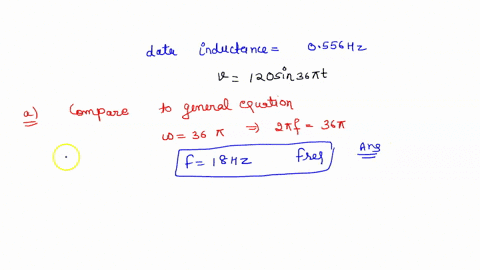 data inductance = 0.556Hz
v = 120sin36πt
a) Compare to general equation
ω = 36 π ⇒ 2πf = 36π
f = 18Hz freq Ans